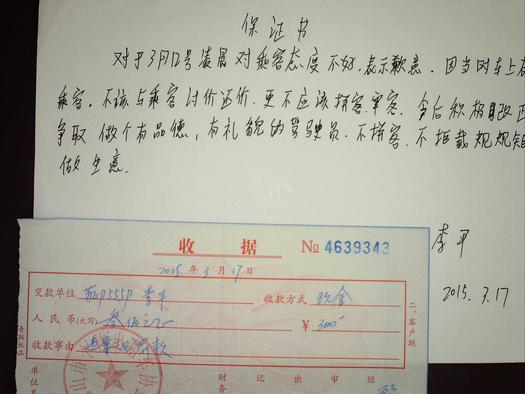 保证书
对于3月12号凌晨对乘客态度不好,表示歉意。因当时车上有
乘客。不该与乘客讨价还价,更不应该拼客宰客。今后积极改正
争取做个有品德,有礼貌的驾驶员。不拼客、不拒载规规矩
做生意。
李平
2015.3.17
收据 No 4639343
2015年3月17日
交款单位 李平 收款方式 现金
人民币(大写) 叁佰元 ¥ 300
收款事由 违章 款
二、客户联
单位
财务 记 出 经